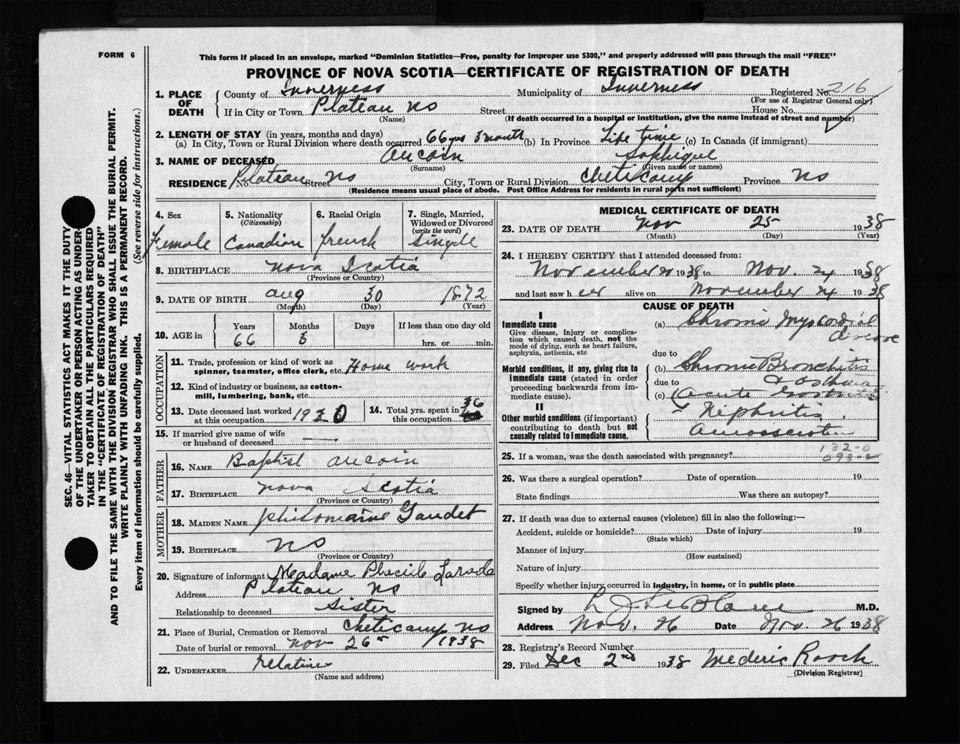 FORM 6
This form if placed in an envelope, marked "Dominion Statistics—Free, penalty for improper use $300," and properly addressed will pass through the mail "FREE"
PROVINCE OF NOVA SCOTIA—CERTIFICATE OF REGISTRATION OF DEATH
1. PLACE OF DEATH
County of Inverness Municipality of Inverness Registered No. 216
(For use of Registrar General only)
If in City or Town Plateau NS Street House No.
(Name) (If death occurred in a hospital or institution, give the name instead of street and number)
2. LENGTH OF STAY (in years, months and days)
(a) In City, Town or Rural Division where death occurred 66 yrs 3 month (b) In Province Life time (c) In Canada (if immigrant)
3. NAME OF DECEASED Aucoin Sophique
(Surname) (Given name or names)
RESIDENCE No. Plateau Street NS City, Town or Rural Division Cheticamp Province NS
(Residence means usual place of abode. Post Office Address for residents in rural parts not sufficient)
4. Sex Female
5. Nationality (Citizenship) Canadian
6. Racial Origin french
7. Single, Married, Widowed or Divorced (write the word) Single
8. BIRTHPLACE Nova Scotia
(Province or Country)
9. DATE OF BIRTH Aug 30 1872
(Month) (Day) (Year)
10. AGE in Years 66 Months 3 Days If less than one day old hrs. or min.
OCCUPATION
11. Trade, profession or kind of work as spinner, teamster, office clerk, etc. Home work
12. Kind of industry or business, as cotton-mill, lumbering, bank, etc.
13. Date deceased last worked at this occupation 1920
14. Total yrs. spent in this occupation 36
15. If married give name of wife or husband of deceased —
FATHER
16. NAME Baptist Aucoin
17. BIRTHPLACE Nova Scotia
(Province or Country)
MOTHER
18. MAIDEN NAME Philomaine Gaudet
19. BIRTHPLACE NS
(Province or Country)
20. Signature of informant Madame Placide
Address Plateau NS
Relationship to deceased Sister
21. Place of Burial, Cremation or Removal Cheticamp NS
Date of burial or removal Nov 26 1938
22. UNDERTAKER Relative
(Name and address)
MEDICAL CERTIFICATE OF DEATH
23. DATE OF DEATH Nov 25 1938
(Month) (Day) (Year)
24. I HEREBY CERTIFY that I attended deceased from:
November 1938 to Nov. 24 1938
and last saw her alive on November 24 1938
CAUSE OF DEATH
I
Immediate cause
Give disease, injury or complication which caused death, not the mode of dying, such as heart failure, asphyxia, asthenia, etc
(a) Chronic Myocardial disease
due to
Morbid conditions, if any, giving rise to immediate cause (stated in order proceeding backwards from immediate).
(b) Chronic Bronchitis & asthma
due to
(c) Acute
II
Other morbid conditions (important) contributing to death but not causally related to immediate cause.
Nephritis
25. If a woman, was the death associated with pregnancy?
26. Was there a surgical operation? Date of operation 19
State findings Was there an autopsy?
27. If death was due to external causes (violence) fill in also the following:—
Accident, suicide or homicide? Date of injury 19
(State which)
Manner of injury
(How sustained)
Nature of injury
Specify whether injury occurred in industry, in home, or in public place
Signed by L J LeBlanc M.D.
Address Nov. 26 Date Nov. 26 1938
28. Registrar's Record Number
29. Filed Dec 2nd 1938 Mederic Roach
(Division Registrar)
SEC. 46—VITAL STATISTICS ACT MAKES IT THE DUTY
OF THE UNDERTAKER OR PERSON ACTING AS UNDER-
TAKER TO OBTAIN ALL THE PARTICULARS REQUIRED
IN THE "CERTIFICATE OF REGISTRATION OF DEATH"
AND TO FILE THE SAME WITH THE DIVISION REGISTRAR WHO SHALL ISSUE THE BURIAL PERMIT.
WRITE PLAINLY WITH UNFADING INK. THIS IS A PERMANENT RECORD.
Every item of information should be carefully supplied. (See reverse side for instructions.)